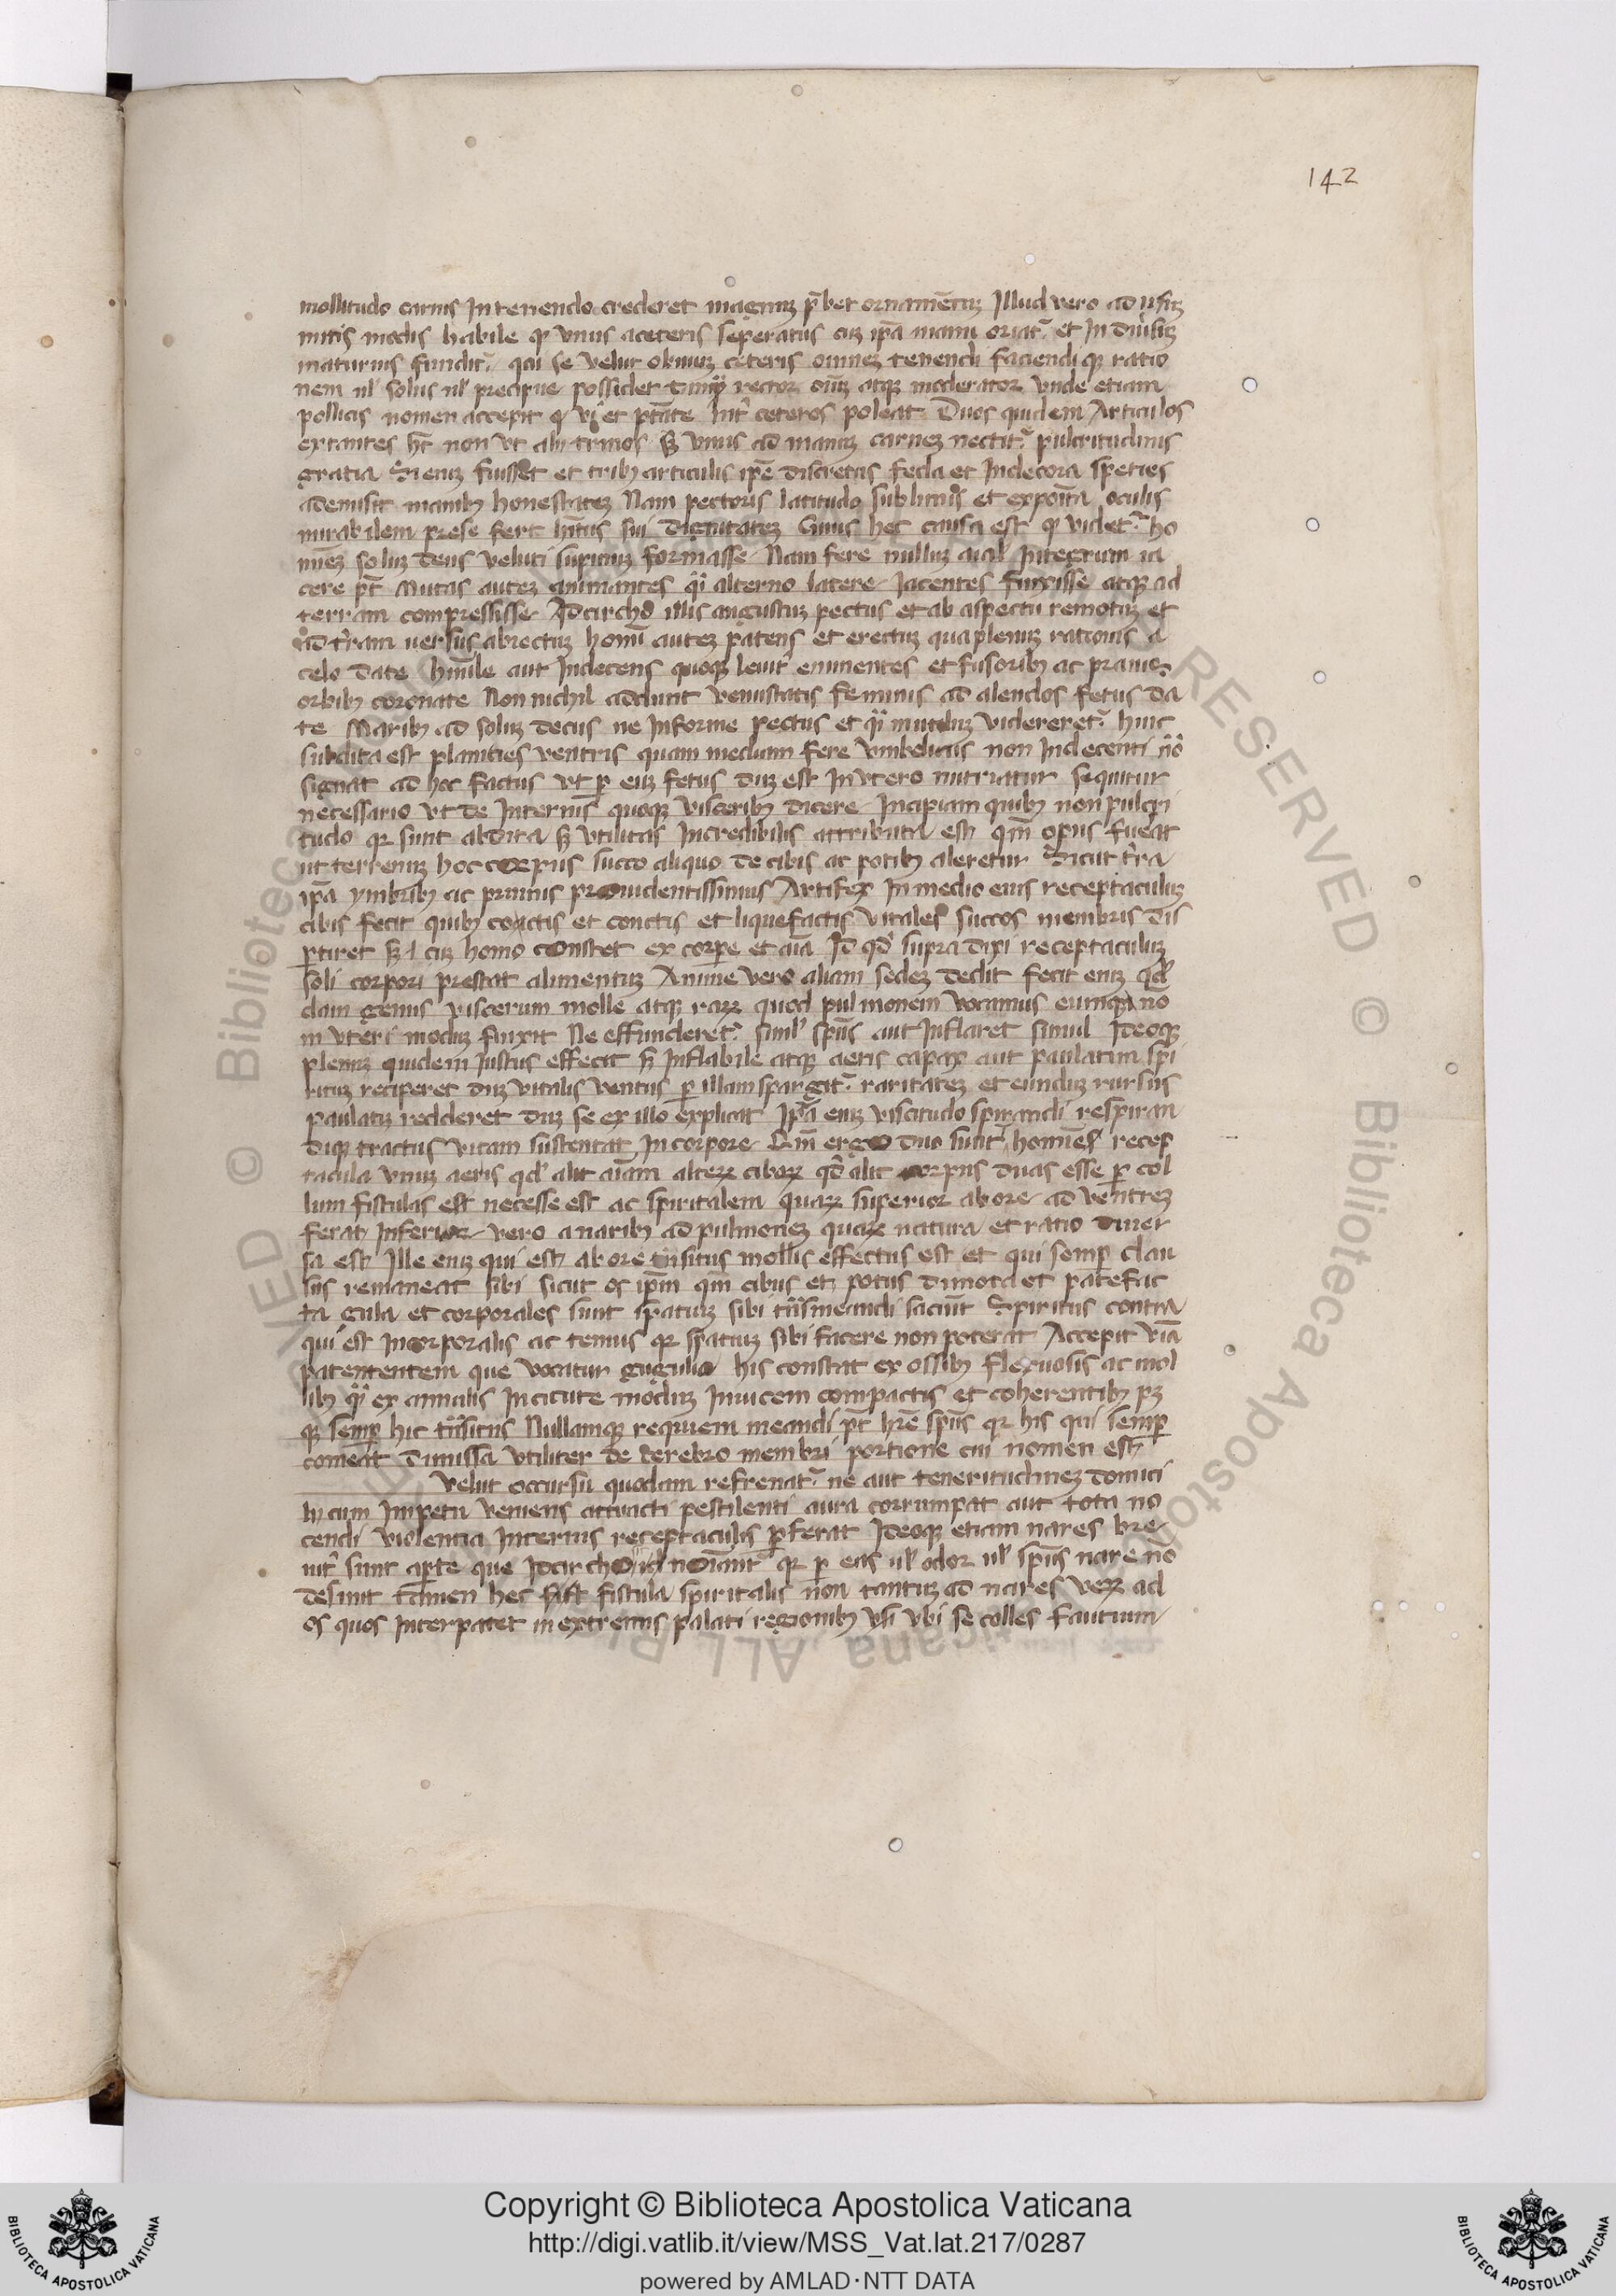 142
mollitudo carnis In tenendo crederet magnuz p̄bet ornamētuz Illud vero ad usuz
miris modis habile qͥ vnus aceteris seperatus cuz ip̄a manu oriat᷑ et In diuīsuz
maturius fundit᷑ qui se velut obuiuz ceteris omnez tenendi faciendi qꝫ ratio
nem ul̓ solus ul̓ precipue possidet rector oīuz atqꝫ moderator vnde etiam
pollicis nomen accepit qͥ vi et pt̄ate Int̓ ceteros poleat Duos quidem Articulos
extantes hꝫ non vt alij ternos sꝫ vnus ad manuz carnez nectit᷑ pulcritudinis
gratia Si enuz fuisset et tribꝫ articulis ip̄e discretus feda et Indecora speties
ademisset manibꝫ honestatez Nam pectoris latitudo sublimis et exposita oculis
mirabilem prese fert hītus sui dignitatez Cuius hec causa est qͥ videt᷑ ho
minez soluz deus veluti supinuz formasse Nam fere nulluz aīal Integrum ia
cere pt̄ Mutas autez animantes qͣi alterno latere Jacentes finxisse atqꝫ ad
terram compressisse Idcircho illis angustuz pectus et ab aspectu remotuz et
ad tr̄am uersus abiectuz homī autez patens et erectuz qua plenuz rationis a
celo date humile aut Indecens quoqꝫ leuit̓ eminentes et fusoribꝫ ac pramis
orbibꝫ coronate Non nichil addunt venustatis feminis ad alendos fetus da
te Maribꝫ ad soluz decus ne Informe pectus et qͣi mutiluz videreret᷑ huic
subdita est planities ventris quam mediam fere vmbelicus non Indecenti nō
signat ad hoc factus vt ꝑ euz fetus duz est In vtero nutriatur sequitur
necessario vt de Internis quoqꝫ visceribꝫ dicere Incipiam quibꝫ non pulcri
tudo qꝛ sunt abdita sꝫ vtilitas Incredibilis attributa est qm̄ opus fuerat
ut terrenuz hoc corpus succo aliquo de cibis ac potibꝫ aleretur Sicut tr̄a
ip̄a ymbribꝫ ac pruinis prouidentissimus Artifex In medio eius receptaculuz
cibis fecit quibꝫ coactis et et liquefactis vitales succos membris dis
ꝑtiret sꝫ cuz homo constet ex corpe et aīa Id qd̓ supra dixi receptaculuz
soli corpori prestat alimentuz Anime vero aliam sedez dedit fecit enuz qd̓
dam genus viscerum molle atqꝫ raꝝ quod pulmonem vocamus eumqꝫ nō
in vteri moduz finxit Ne effunderet᷑ simul̓ spūs aut Inflaret simul Ideoqꝫ
plenuz quidem Iustus effecit sꝫ Inflabile atqꝫ aeris capax aut paulatim spi
rituz reciperet duz vitalis ventus ꝑ illam spargit᷑ raritatez et eunduz rursus
paulatiz redderet duz se ex illo explicat Ip̄a enuz viscitudo spirandi respiran
diqꝫ tractus vitam sustentat In corpore Qm̄ ergo duo sunt homīes̓ recep
tacula vnuz aeris qd̓ alit aīam alteꝝ ciboꝝ qd̓ alit corpus duas esse ꝑ col
lum fistulas est necesse est ac spiritalem quaꝝ superior abore ad ventrez
ferat Inferior vero a naribꝫ ad pulmonez quaꝝ natura et ratio diuer
sa est Ille enuz qui est ab ore trāsitus mollis effectus est et qui semꝑ clau
sus remaneat sibi sicut os ip̄m qm̄ cibus et potus dimota et patefac
ta gula et corporales sunt spatiuz sibi trāsmeandi faciūt Spiritus contra
qui est Incorporalis ac tenuis qꝛ spatiuz sibi facere non poterat Accepit viā
patententem que vocatur gugulio his constat ex ossibꝫ flexuosis ac mol
libꝫ qͣi ex annulis In cicute moduz Inuicem compactis et coherentibꝫ pꝫ
qꝫ semꝑ hic trāsitus Nullamqꝫ requiem meandi pt̄ hr̄e spūs qꝛ his qui semꝑ
comeat dimissa vtiliter de cerebro membri portione cui nomen est
velut occursu quodam refrenat᷑ ne aut teneritudinez domici
lij cum Impetu veniens attracti pestilenti aura corrumpat aut tota no
cendi violentia Internis receptaculis ꝑferat Ideoqꝫ etiam nares bre
uit̓ sunt aperte que Idcircho noīant᷑ qꝛ ꝑ eas ul̓ odor ul̓ spūs nare nō
desinit tamen hec fistula spiritalis non tantuz ad nares veꝝ ad
os quos Interpatet in extremis palati regionibꝫ vbi se colles fautium
Copyright © Biblioteca Apostolica Vaticana
http://digi.vatlib.it/view/MSS_Vat.lat.217/0287
powered by AMLAD·NTT DATA